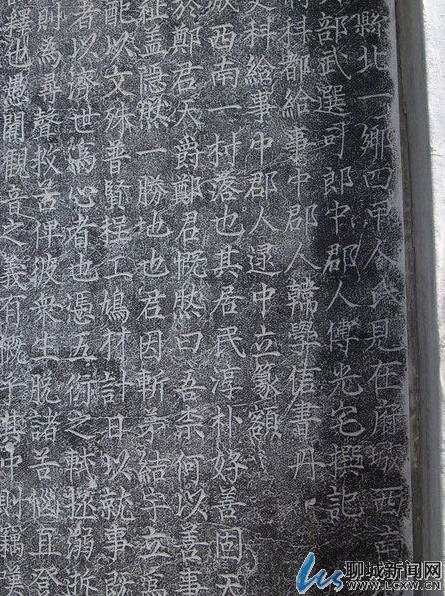 縣北一鄉四甲人氏見在府城西
部武選司郎中郡人傅光宅撰記
科都給事中郡人韓學信書丹
科給事中郡人逯中立篆額
西南一村落也其居民淳朴好善固天
於鄭君天爵鄭君慨然曰吾柰何以善事
祉盖隱然一勝地也君因斬茅結宇立
配以文殊普賢程工鳩材計日以就事
者以濟世為心者也憑五衍之軾拯溺
則為尋聲救苦俾彼衆生脫諸苦惱宜登
釋也愚聞觀音之義有慨于其中則竊
聊城新闻网
WWW.LCXW.CN